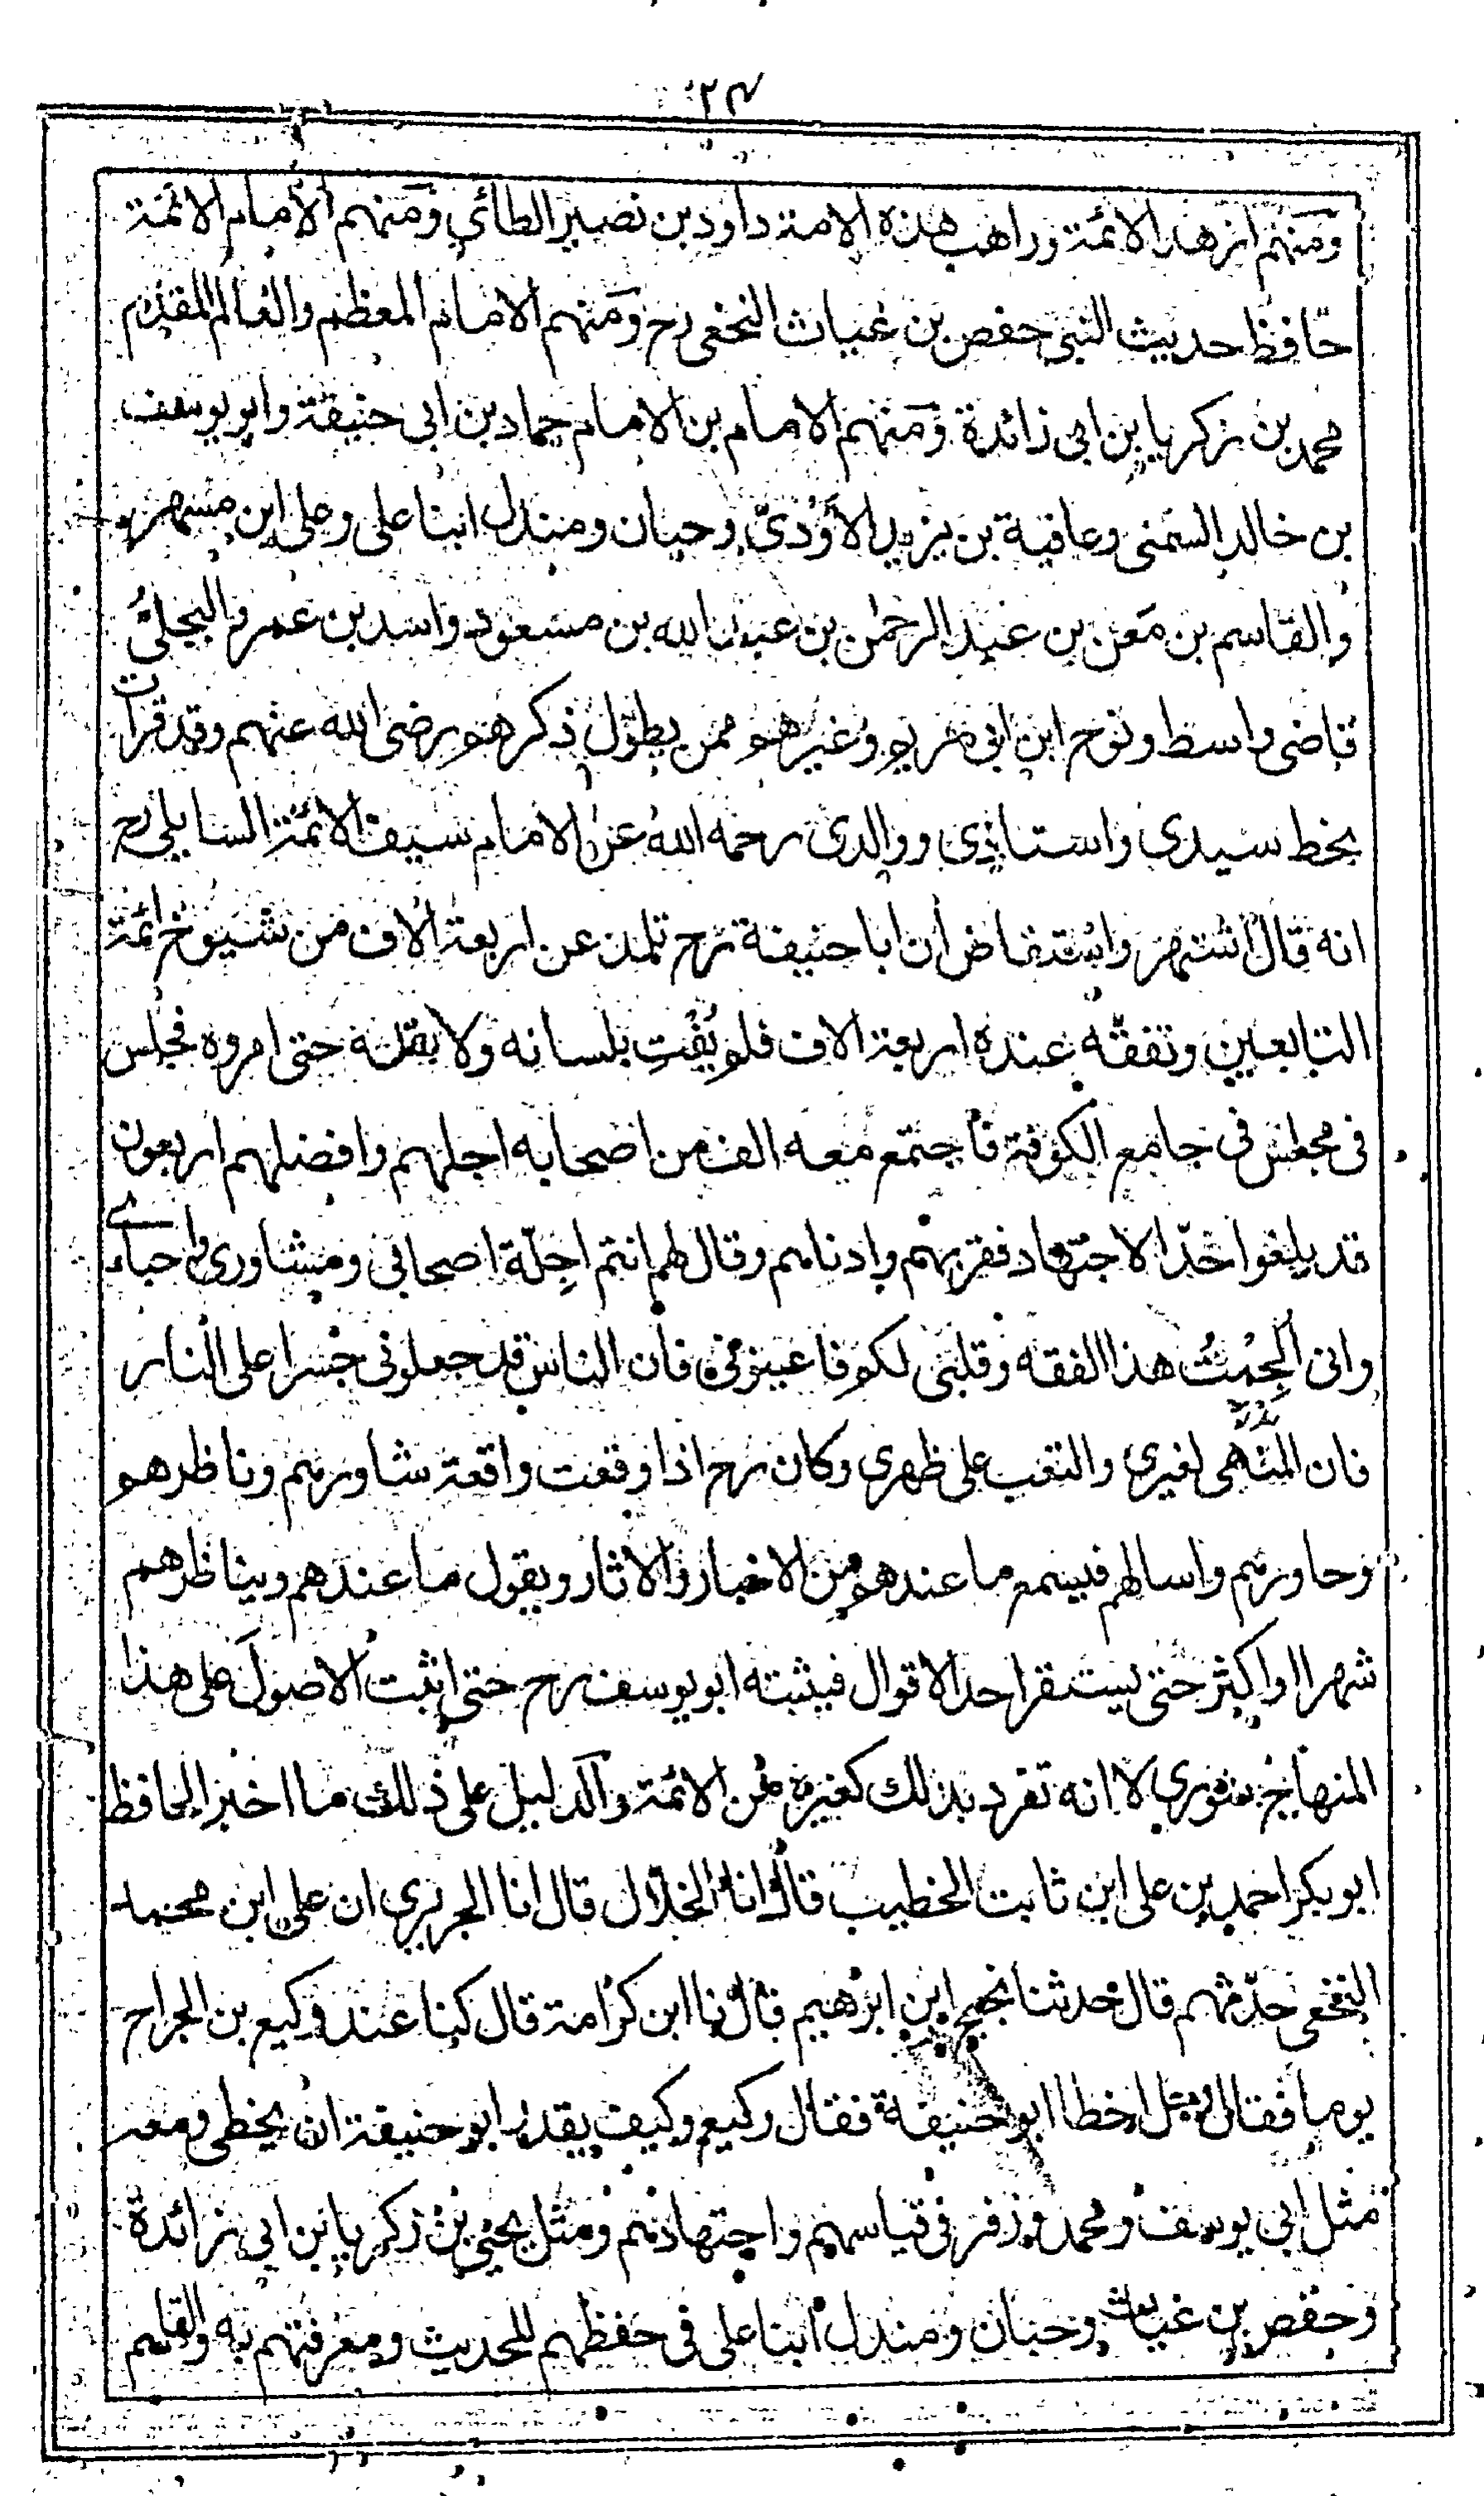 ٢٤
ومنهم ازهد الائمة وراهب هذه الامة داود بن نصير الطائي ومنهم الامام الائمة
حافظ حديث النبي حفص بن غياث النخعي رح ومنهم الامام المعظم والعالم المقدم
محمد بن زكريا بن ابي زائدة ومنهم الامام بن الامام حماد بن ابي حنيفة وابو يوسف
بن خالد السمتي وعافية بن يزيد الاودي وحيان ومندل ابنا علي وعلي ابن مسهر
والقاسم بن معن بن عبد الرحمن بن عبد الله بن مسعود واسد بن عمرو البجلي
قاضي واسط ونوح ابن ابي مريم وغيرهم ممن يطول ذكرهم رضى الله عنهم وقد قرات
بخط سيدي واستاذي ووالدي رحمه الله عن الامام سيف الائمة السايلي رح
انه قال اشتهر واستفاض ان ابا حنيفة رح تلمذ عن اربعة الاف من شيوخ ائمة
التابعين وتفقه عنده اربعة الاف فلم يفت بلسانه ولا بقلمه حتى امروه فجلس
في مجلس في جامع الكوفة فاجتمع معه الف من اصحابه اجلهم وافضلهم اربعون
قد بلغوا حد الاجتهاد فقربهم وادناهم وقال لهم انتم اجلة اصحابي ومشاوري واحبائي
واني الجمت هذا الفقه وقلبي لكم فاعينوني فان الناس قد جعلوني جسرا على النار
فان المنتهى لغيري والتعب على ظهري وكان رح اذا وقعت واقعة شاورهم وناظرهم
وحاورهم واسالهم فيسمع ما عندهم من الاخبار والاثار ويقول ما عندهم ويناظرهم
شهرا او اكثر حتى يستقر احد الاقوال فيثبته ابو يوسف رح حتى اثبت الاصول على هذا
المنهاج شوري لا انه تفرد بذلك كغيره من الائمة واكد ليل على ذلك ما اخبر الحافظ
ابو بكر احمد بن علي ابن ثابت الخطيب قال انا الخلال قال انا الجريري ان علي ابن محمد
النخعي حدثهم قال حدثنا نجيح ابن ابرهيم قال نا ابن كرامة قال كنا عند وكيع بن الجراح
يوما فقال رجل اخطا ابو حنيفة فقال وكيع وكيف يقدر ابو حنيفة ان يخطى ومعه
مثل ابي يوسف ومحمد وزفر في قياسهم واجتهادهم ومثل يحيى بن زكريا بن ابي زائدة
وحفص بن غياث وحبان ومندل ابنا علي في حفظهم للحديث ومعرفتهم به والقاسم